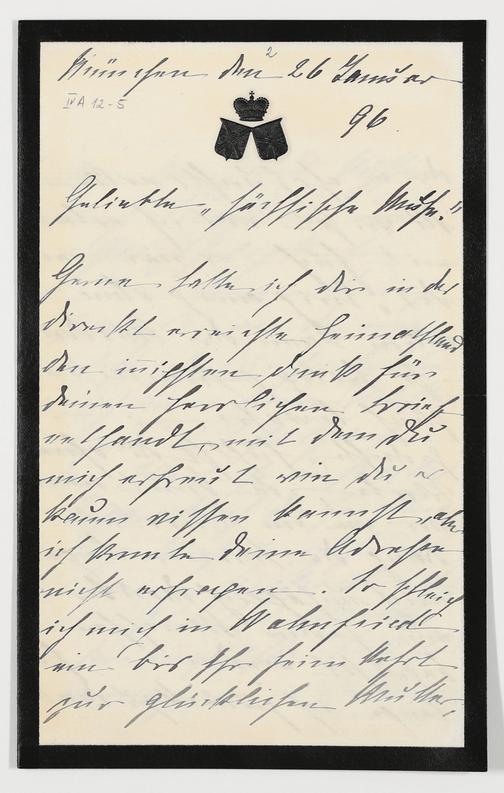 München den 26 Januar
2
IV A 12-5
96.
Geliebte „sächsische Muse."
Gerne hätte ich dir in der
direckt erreichte Heimathland
den innigsten Dank für
deinen herrlichen Brief
gesandt, mit dem du
mich erfreut wie du es
kaum wissen kannst, aber
ich konnte deine Adresse
nicht erfragen. So schleich
ich mich in Wahnfried
ein bis Ihr heim kehrt
zur glücklichen Mutter,